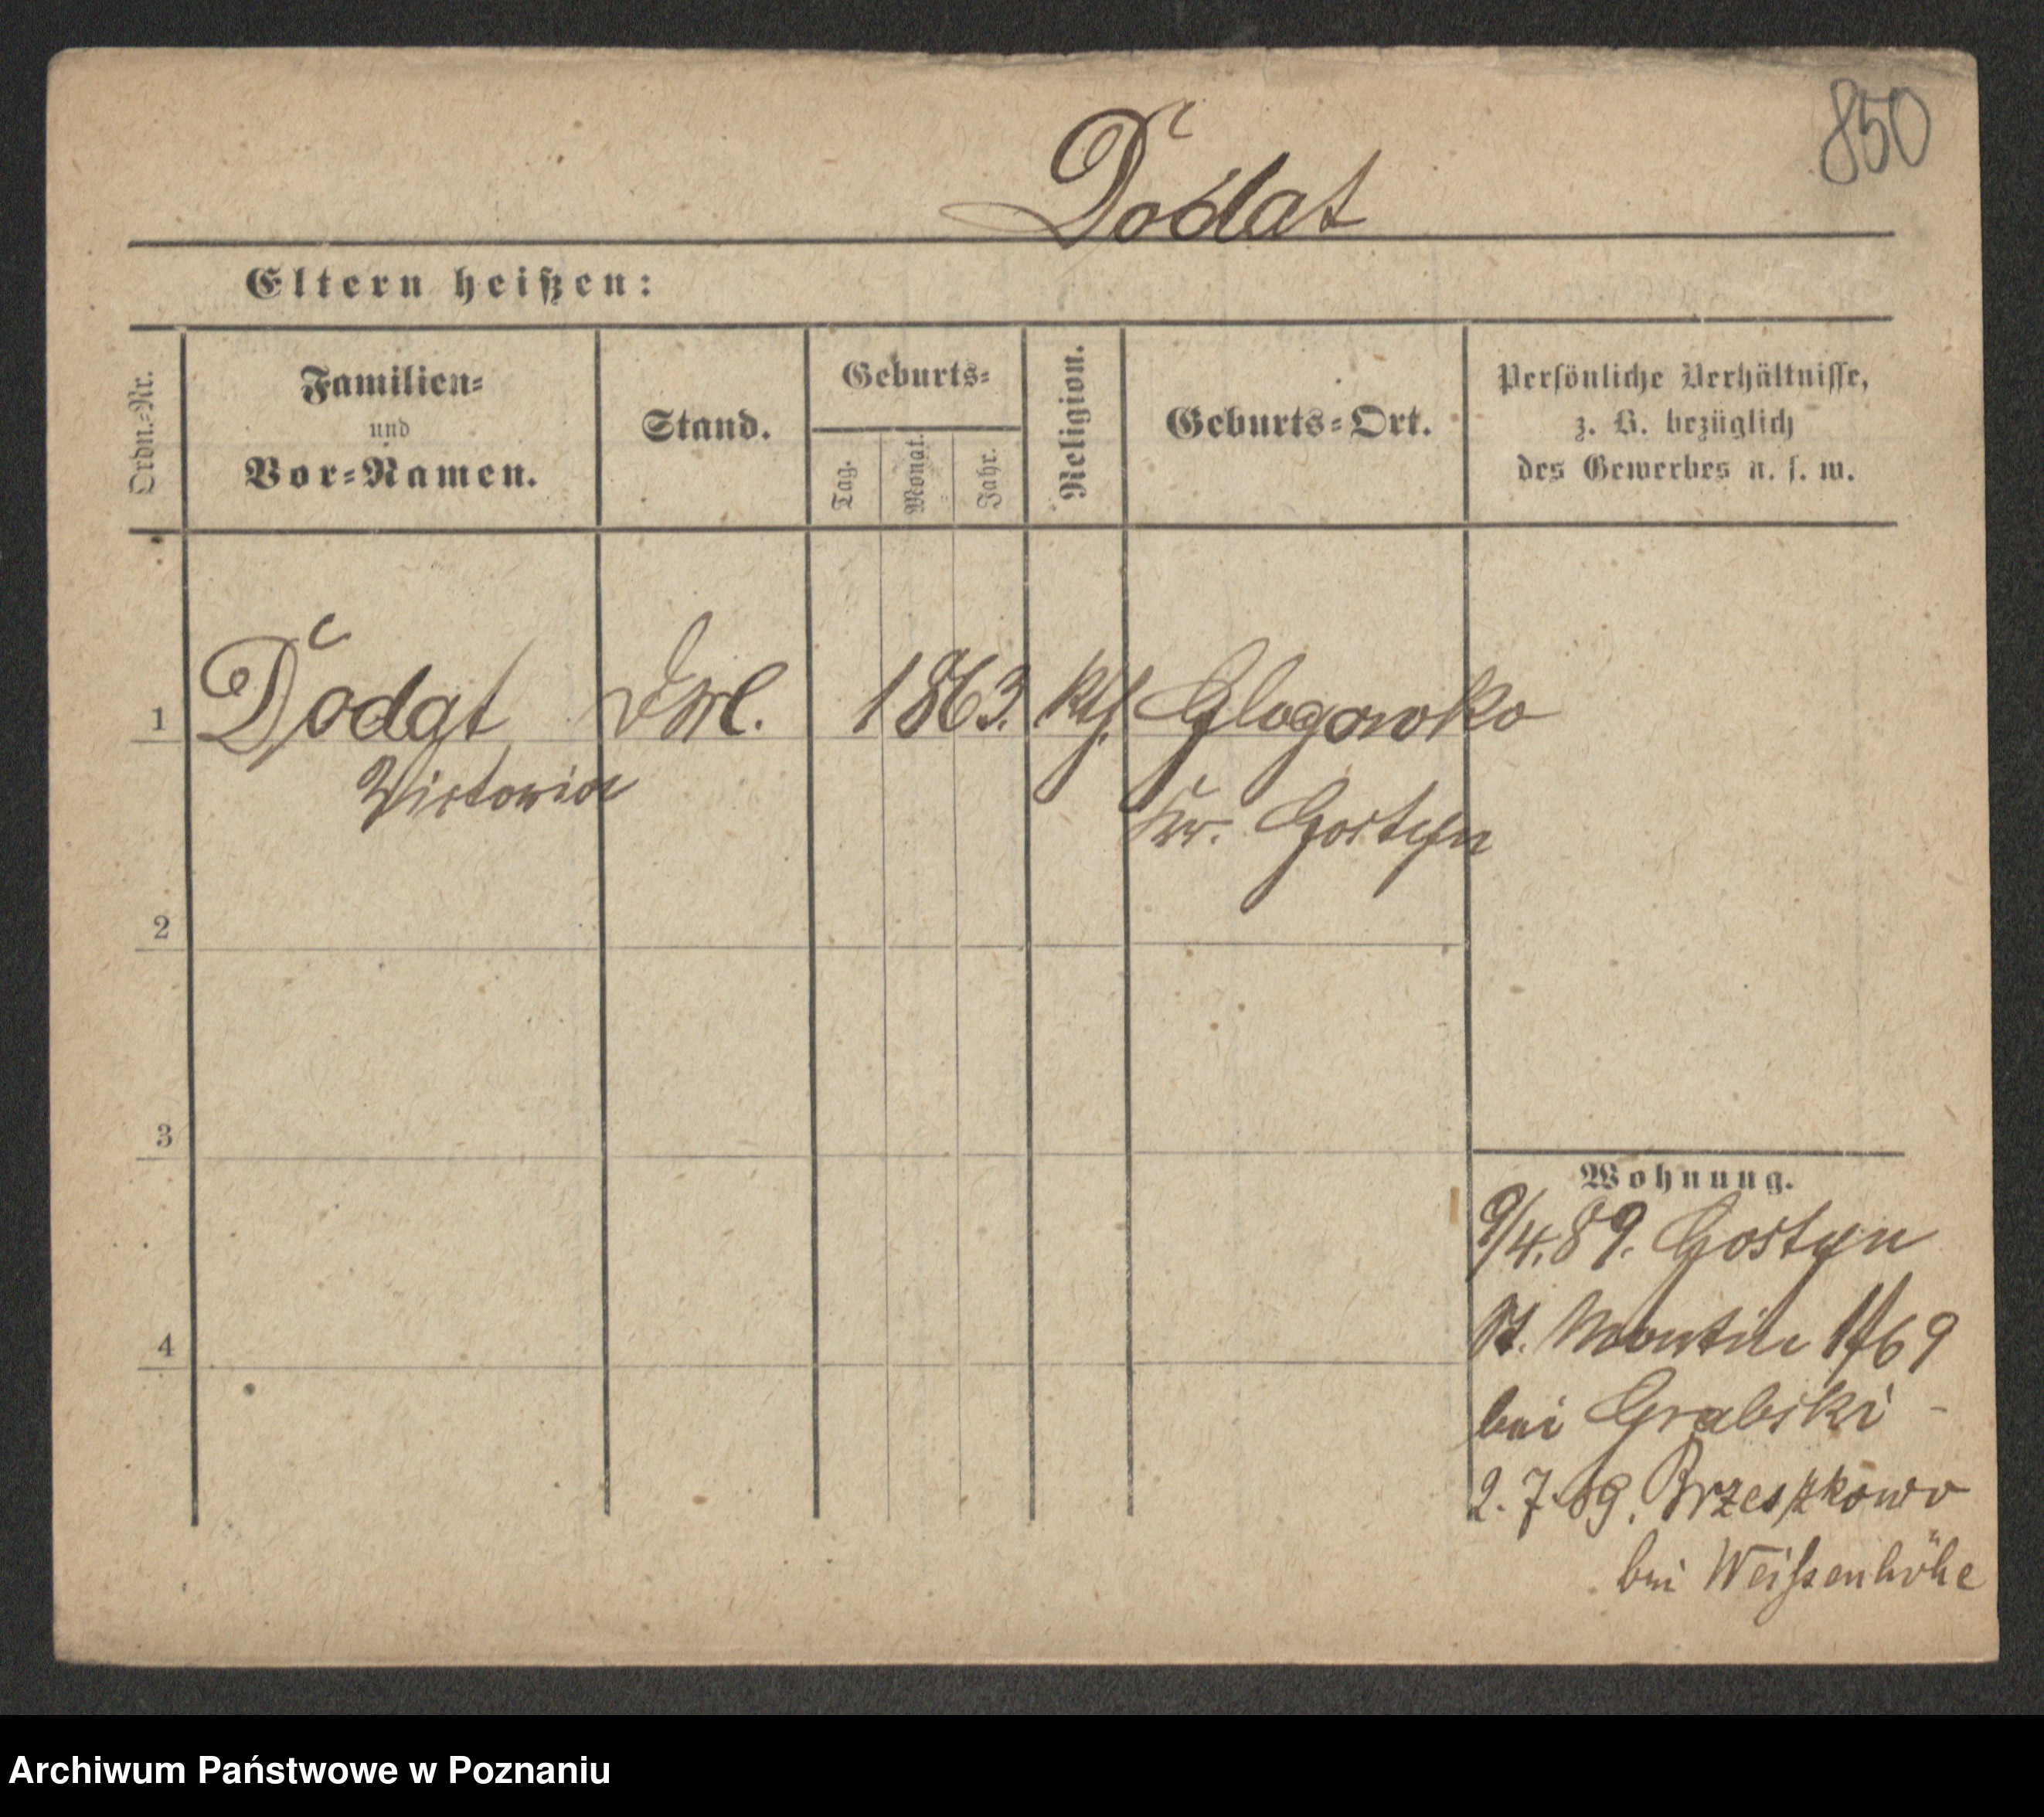 850
Dodat
Eltern heißen:
Ordn.-Nr.
Familien-
und
Vor-Namen.
Stand.
Geburts-
Tag.
Monat.
Jahr.
Religion.
Geburts-Ort.
Persönliche Verhältnisse,
z. B. bezüglich
des Gewerbes u. s. w.
1 Dodat 1863. kth. Glogowko
Victoria
Kr. Gostyn
2
3
4
Wohnung.
9/4.89. Gostyn
St. Martin
bei Grabski -
2.7.89. Brzeszkowo
bei Weißenhöhe
Archiwum Państwowe w Poznaniu